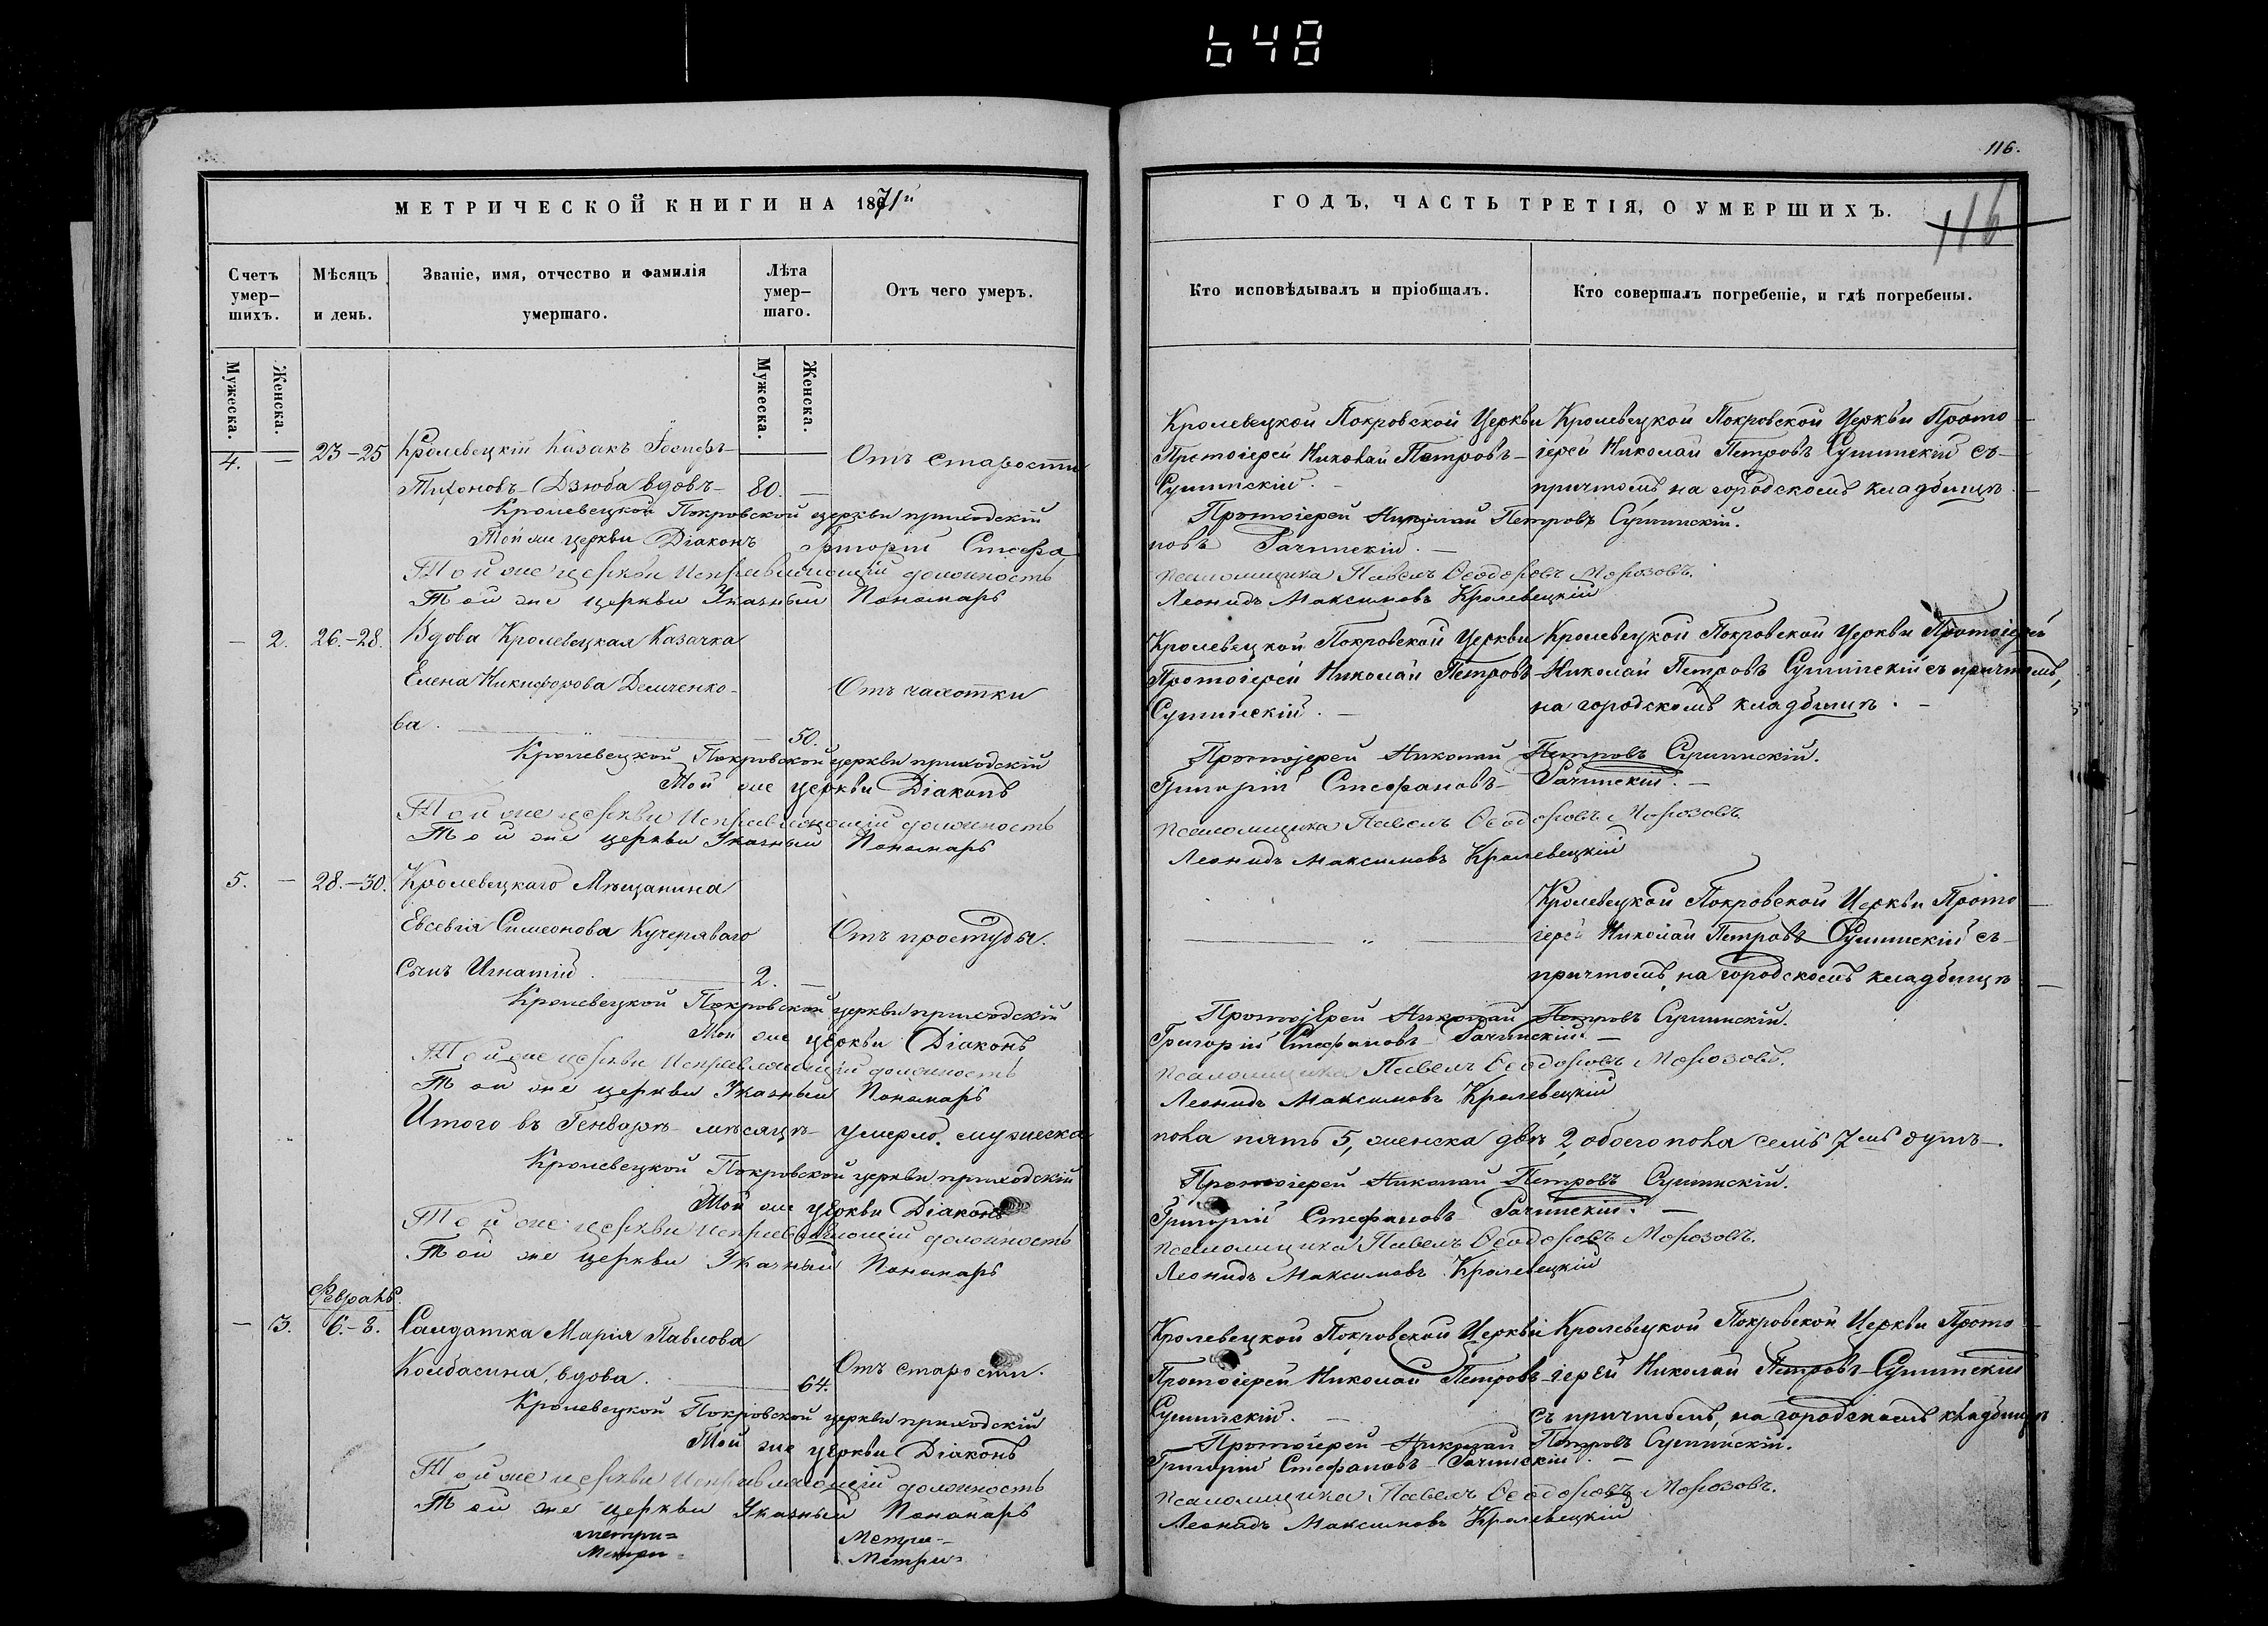 648
116.
116
МЕТРИЧЕСКОЙ КНИГИ НА 1871й
ГОДЪ, ЧАСТЬ ТРЕТІЯ, О УМЕРШИХЪ.
Счетъ умер-
шихъ.
Мѣсяцъ
и день.
Званіе, имя, отчество и фамилія
умершаго.
Лѣта
умер-
шаго.
Отъ чего умеръ.
Кто исповѣдывалъ и пріобщалъ.
Кто совершалъ погребеніе, и гдѣ погребены.
Мужеска.
Женска.
Мужеска.
Женска.
4. — 23-25 Кролевецкій Казакъ Іосифъ
Тихоновъ Дзюба вдовъ 80. —
Отъ старости
Кролевецкой Покровской Церкви
Протоіерей Николай Петровъ
Сулимскій.
Кролевецкой Покровской Церкви Прото
іерей Николай Петровъ Сулимскій съ
причтомъ, на городскомъ кладбищѣ.
Кролевецкой Покровской церкви приходскій Протоіерей Николай Петровъ Сулимскій.
Той же церкви Діаконъ Григорій Стефановъ Рачинскій.
Той же церкви Исправляющій должность псаломщика Павелъ Ѳеодоровъ Морозовъ.
Той же церкви Указный Пономарь Леонидъ Максимовъ Кролевецкій
— 2. 26.-28. Вдова Кролевецкая Казачка
Елена Никифорова Демченко-
ва. 50.
Отъ чахотки
Кролевецкой Покровской Церкви
Протоіерей Николай Петровъ
Сулимскій.
Кролевецкой Покровской Церкви Протоіерей
Николай Петровъ Сулимскій съ причтомъ,
на городскомъ кладбищѣ.
Кролевецкой Покровской церкви приходскій Протоіерей Николай Петровъ Сулимскій.
Той же церкви Діаконъ Григорій Стефановъ Рачинскій.
Той же церкви Исправляющій должность псаломщика Павелъ Ѳеодоровъ Морозовъ
Той же церкви Указный Пономарь Леонидъ Максимовъ Кролевецкій
5. — 28.-30. Кролевецкаго Мѣщанина
Евсевія Симеонова Кучеряваго
Сынъ Игнатій. 2. —
Отъ простуды.
Кролевецкой Покровской Церкви Прото
іерей Николай Петровъ Сулимскій съ
причтомъ, на городскомъ кладбищѣ
Кролевецкой Покровской церкви приходскій Протоіерей Николай Петровъ Сулимскій.
Той же церкви Діаконъ Григорій Стефановъ Рачинскій.
Той же церкви Исправляющій должность псаломщика Павелъ Ѳеодоровъ Морозовъ.
Той же церкви Указный Пономарь Леонидъ Максимовъ Кролевецкій
Итого въ Генварѣ мѣсяцѣ умерло. мужеска пола пять 5, женска двѣ 2, обоего пола семь 7мь душъ.
Кролевецкой Покровской церкви приходскій Протоіерей Николай Петровъ Сулимскій.
Той же церкви Діаконъ Григорій Стефановъ Рачинскій.
Той же церкви Исправляющій должность псаломщика Павелъ Ѳеодоровъ Морозовъ.
Той же церкви Указный Пономарь Леонидъ Максимовъ Кролевецкій
Февраль.
— 3. 6.-8. Салдатка Марія Павлова
Колбасина, вдова. 64.
Отъ старости.
Кролевецкой Покровской Церкви
Протоіерей Николай Петровъ
Сулимскій.
Кролевецкой Покровской Церкви Прото
іерей Николай Петровъ Сулимскій
съ причтомъ, на городскомъ кладбищѣ
Кролевецкой Покровской церкви приходскій Протоіерей Николай Петровъ Сулимскій.
Той же церкви Діаконъ Григорій Стефановъ Рачинскій.
Той же церкви Исправляющій должность псаломщика Павелъ Ѳеодоровъ Морозовъ.
Той же церкви Указный Пономарь Леонидъ Максимовъ Кролевецкій
Метри= Метри-
Метри= Метри=